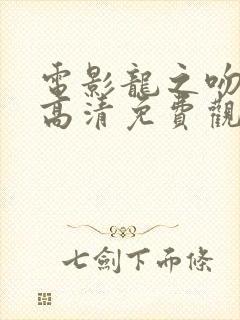 電影龍之吻
高清免費觀
七劍下而條